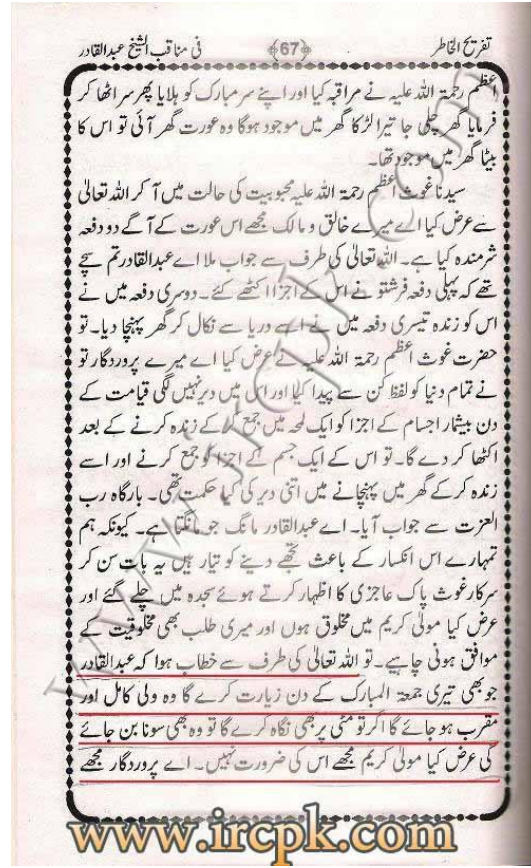 تفریح الخاطر ﴿67﴾ فی مناقب الشیخ عبدالقادر
اعظم رحمۃ اللہ علیہ نے مراقبہ کیا اور اپنے سر مبارک کو ہلایا پھر سر اٹھا کر
فرمایا گھر چلی جا تیرا لڑکا گھر میں موجود ہوگا وہ عورت گھر آئی تو اس کا
بیٹا گھر میں موجود تھا۔
سیدنا غوث اعظم رحمۃ اللہ علیہ محبوبیت کی حالت میں آ کر اللہ تعالیٰ
سے عرض کیا اے میرے خالق و مالک مجھے اس عورت کے آگے دو دفعہ
شرمندہ کیا ہے۔ اللہ تعالیٰ کی طرف سے جواب ملا اے عبدالقادر تم سچے
تھے کہ پہلی دفعہ فرشتو نے اس کے اجزا اکٹھے کئے۔ دوسری دفعہ میں نے
اس کو زندہ تیسری دفعہ میں نے اسے دریا سے نکال کر گھر پہنچا دیا۔ تو
حضرت غوث اعظم رحمۃ اللہ علیہ نے عرض کیا اے میرے پروردگار تو
نے تمام دنیا کو لفظ کن سے پیدا کیا اور اس میں دیر نہیں لگی قیامت کے
دن بیشمار اجسام کے اجزا کو ایک لمحہ میں جمع کر کے زندہ کرنے کے بعد
اکٹھا کر دے گا۔ تو اس کے ایک جسم کے اجزا کو جمع کرنے اور اسے
زندہ کر کے گھر میں پہنچانے میں اتنی دیر کی کیا حکمت تھی۔ بارگاہ رب
العزت سے جواب آیا۔ اے عبدالقادر مانگ جو مانگتا ہے۔ کیونکہ ہم
تمہارے اس انکسار کے باعث تجھے دینے کو تیار ہیں یہ بات سن کر
سرکار غوث پاک عاجزی کا اظہار کرتے ہوئے سجدہ میں چلے گئے اور
عرض کیا مولیٰ کریم میں مخلوق ہوں اور میری طلب بھی مخلوقیت کے
موافق ہونی چاہیے۔ تو اللہ تعالیٰ کی طرف سے خطاب ہوا کہ عبدالقادر
جو بھی تیری جمعۃ المبارک کے دن زیارت کرے گا وہ ولی کامل اور
مقرب ہو جائے گا اگر تو مٹی پر بھی نگاہ کرے گا تو وہ بھی سونا بن جائے
گی عرض کیا مولیٰ کریم مجھے اس کی ضرورت نہیں۔ اے پروردگار مجھے
www.ircpk.com